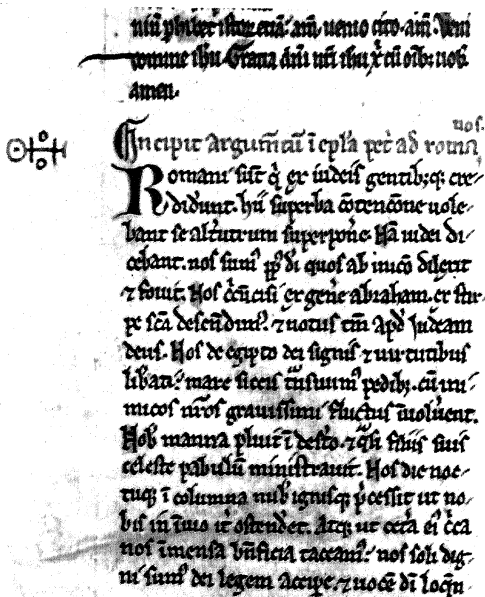 niū phibet istoꝝ etiā. am̄. uenio cito. am̄. Veni
domine ihū. Gratia dn̄i nr̄i ihū xp̄i cū oīb; uob̄
amen.
Incipit argum̄tū ī ep̄la pet̄ ad roma
nos.
Romani sūt q̄ ex iudeis gentib;q; cre-
didunt. hii superba ɔtencōne uole-
bant se alt̄utrum superpoñe. Nā iudei di-
cebant. nos sum᷒ pp̄ls di quos ab inicō dilexit
⁊ fouit. Nos c̄ūcisi ex geñe abraham. ex stir-
pe sc̄a descendim᷒. ⁊ notus tm̄ apd̄ iudeam
deus. Nos de egipto dei signis ⁊ uirtutibus
lib̄ati. mare siccis t̄nsiuim᷒ pedib;. cū ini-
micos nr̄os grauissimi fluctus īuoluerent.
Nob̄ manna pluit ī desto. ⁊ q̄si filiis suis
celeste pabulū ministrauit. Nos die noc-
tuq; ī columna nub̄ ignisq; p̄cessit ut no-
bis in īuio it̄ ostendet. Atq; ut cet̄a ei᷒ c̄ca
nos īmensa bn̄ficia taceam᷒. nos soli dig-
ni fuim᷒ dei legem accipe. ⁊ uocē dī loq̄n